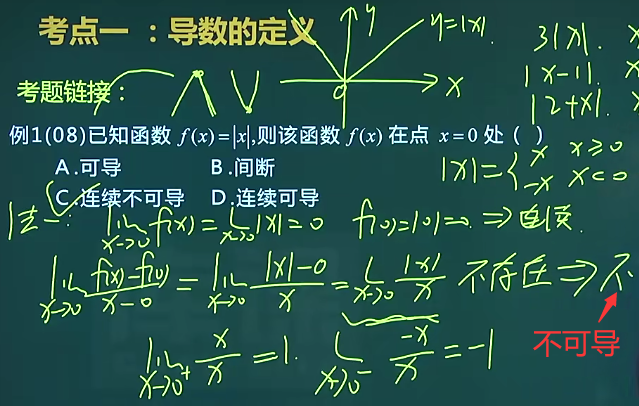 考点一 ：导数的定义
y
y=|x|
0
x
3|x|.
|x-1|.
|2+x|.
考题链接：
例1(08)已知函数 f(x)=|x|,则该函数 f(x) 在点 x=0 处 ( )
A.可导 B.间断
C.连续不可导 D.连续可导
|x|={ x x≥0
-x x<0
法一: lim x→0 f(x)=lim x→0 |x|=0 f(0)=|0|=0 ⇒连续.
lim x→0 f(x)-f(0)/x-0 = lim x→0 |x|-0/x = lim x→0 |x|/x 不存在⇒不
不可导
lim x→0+ x/x =1. lim x→0- -x/x =-1